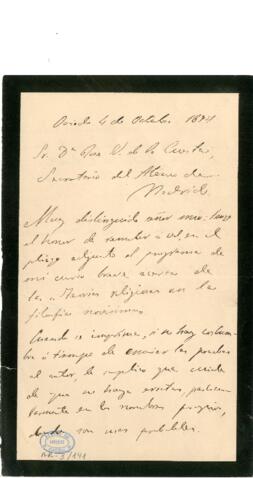 Oviedo 4 de Octubre 1897
Sr. Dn José V. de la Cuesta,
Secretario del Ateneo de
Madrid.
Muy distinguido señor mio: tengo
el honor de remitir á vd. en el
pliego adjunto el programa de
mi curso breve acerca de
las Teorías religiosas en la
filosofía novísima.
Cuando se imprima, si no hay costum-
bre ó tiempo de enviar las pruebas
al autor, le suplico que cuide
de que no haya erratas, particu-
larmente en los nombres propios,
donde son mas posibles.
AR-3/141